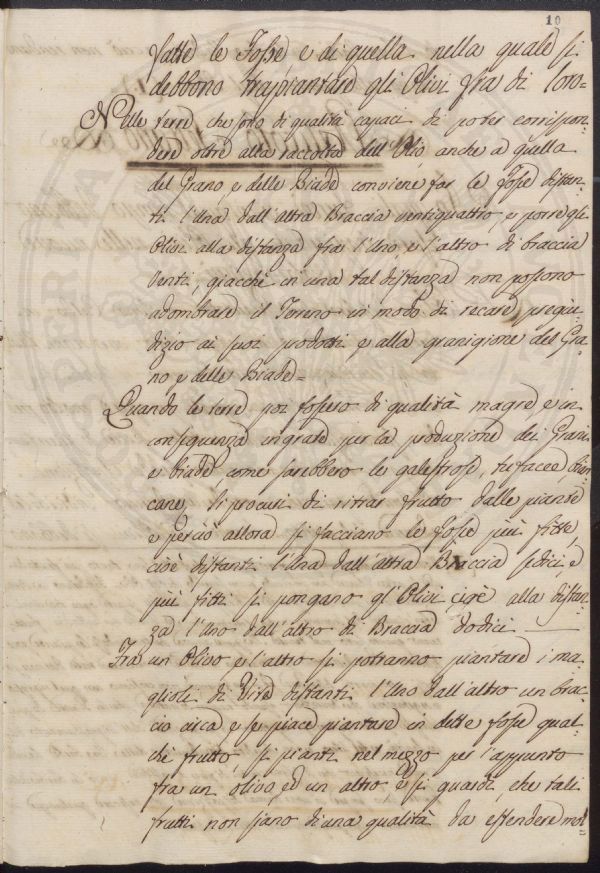 19
fatte le fosse e di quella nella quale si
debbono trapiantare gli Olivi fra di loro=
Nelle terre che sono di qualità capaci di poter corrispon=
dere oltre alla raccolta dell'Olio anche a quella
del Grano, e delle Biade conviene far le fosse distan=
ti l'una dall'altra Braccia ventiquattro, e porre gli
Olivi alla distanza fra l'uno, e l'altro di braccia
venti, giacchè in una tal distanza non possono
adombrare il Terreno in modo di recare pregiu=
dizio ai suoi prodotti, e alla granigione del Gra=
no e delle Biade=
Quando le terre poi fossero di qualità magre e in
conseguenza ingrate per la produzione dei Grani
e biade, come sarebbero le galestrose, tufacee, bian
cane, si procuri di ritrar frutto dalle piante
e perciò allora si facciano le fosse più fitte,
cioè distanti l'una dall'altra Braccia sedici, e
più fitti si pongano gl'Olivi cioè alla distan=
za l'uno dall'altro di Braccia dodici
Fra un Olivo, e l'altro si potranno piantare i ma
glioli di Vite distanti l'uno dall'altro un brac=
cio circa, e se piace piantare in dette fosse qual=
che frutto, si pianti nel mezzo per l'appunto
fra un olivo, ed un altro, e si guardi, che tali
frutti non siano di una qualità da estendere mol=